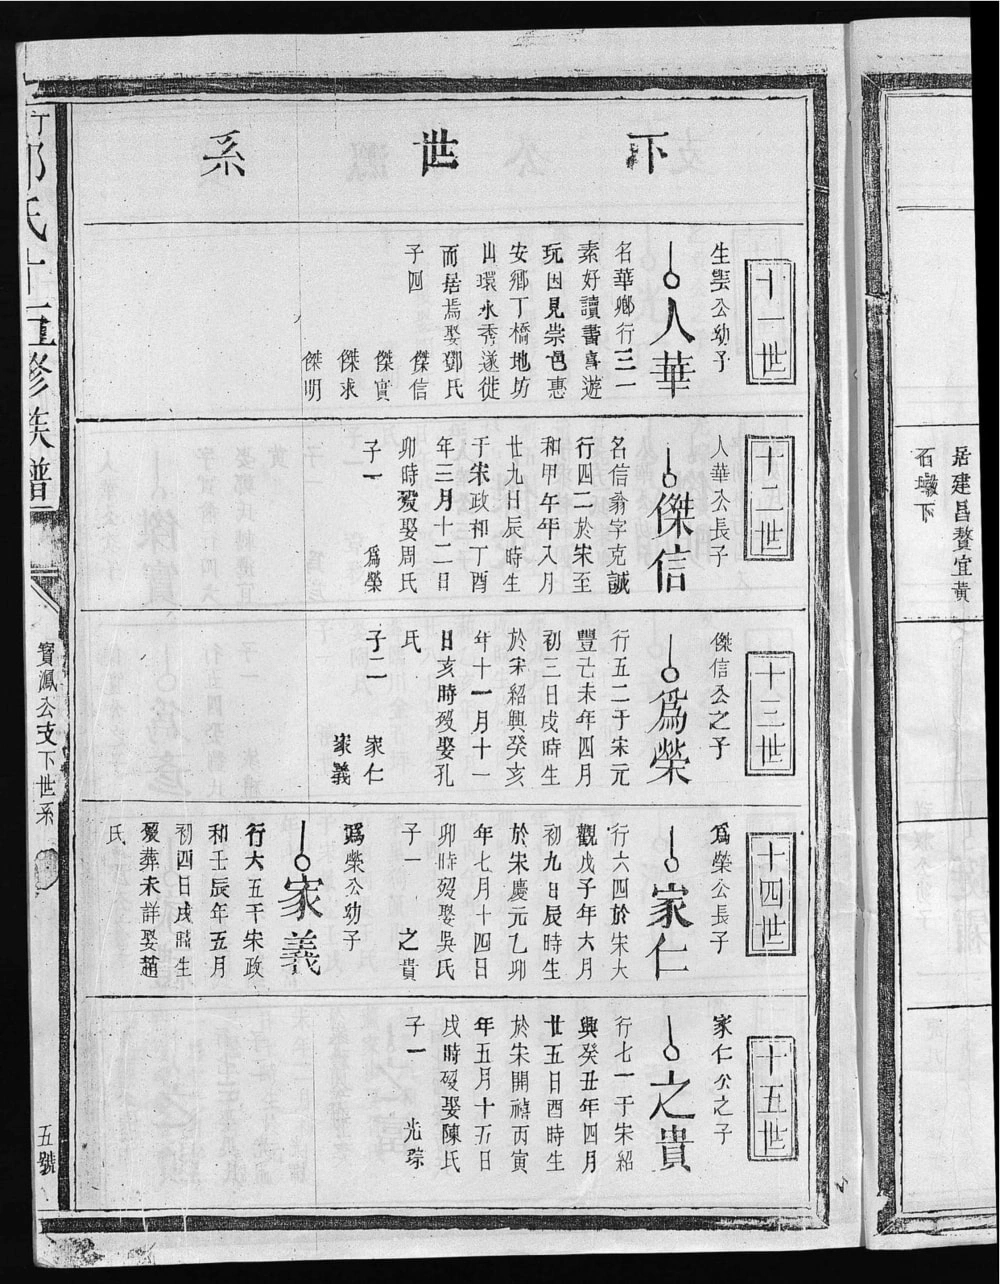 居建昌贅宜黃
石墩下
下世系
十一世
生㙯公幼子
人華
名華鄉行三一
素好讀書喜遊
玩因見崇邑惠
安鄉丁橋地坊
山環水秀遂徙
而居焉娶鄧氏
子四
傑信
傑實
傑求
傑明
十二世
人華公長子
傑信
名信翁字克誠
行四二於宋至
和甲午年八月
廿九日辰時生
于宋政和丁酉
年三月十二日
卯時歿娶周氏
子一
爲榮
十三世
傑信公之子
爲榮
行五二于宋元
豐己未年四月
初三日戌時生
於宋紹興癸亥
年十一月十一
日亥時歿娶孔
氏
子二
家仁
家義
十四世
爲榮公長子
家仁
行六四於宋大
觀戊子年六月
初九日辰時生
於宋慶元乙卯
年七月十四日
卯時歿娶吳氏
子一
之貴
爲榮公幼子
家義
行六五于宋政
和壬辰年五月
初四日戌時生
歿葬未詳娶趙
氏
十五世
家仁公之子
之貴
行七一于宋紹
興癸丑年四月
廿五日酉時生
於宋開禧丙寅
年五月十五日
戌時歿娶陳氏
子一
光琮
氏十五修族譜
寶鳳公支下世系
五號